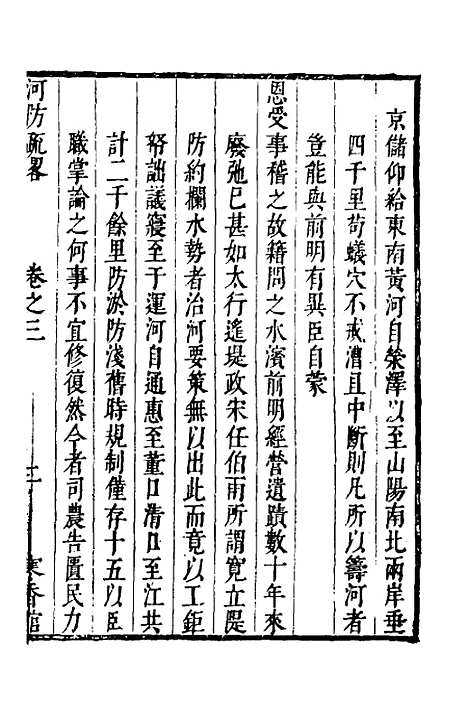 京儲仰給東南黃河自滎澤以至山陽南北兩岸垂
四千里苟蟻穴不戒漕且中斷則凡所以籌河者
豈能與前明有異臣自蒙
恩受事稽之故籍問之水濱前明經營遺蹟數十年來
廢弛已甚如太行遙堤政宋任伯雨所謂寬立隄
防約攔水勢者治河要策無以出此而竟以工鉅
帑詘議寢至于運河自通惠至董口清口至江共
計二千餘里防淤防淺舊時規制僅存十五以臣
職掌論之何事不宜修復然今者司農告匱民力
河防疏畧
卷之三
寒香館